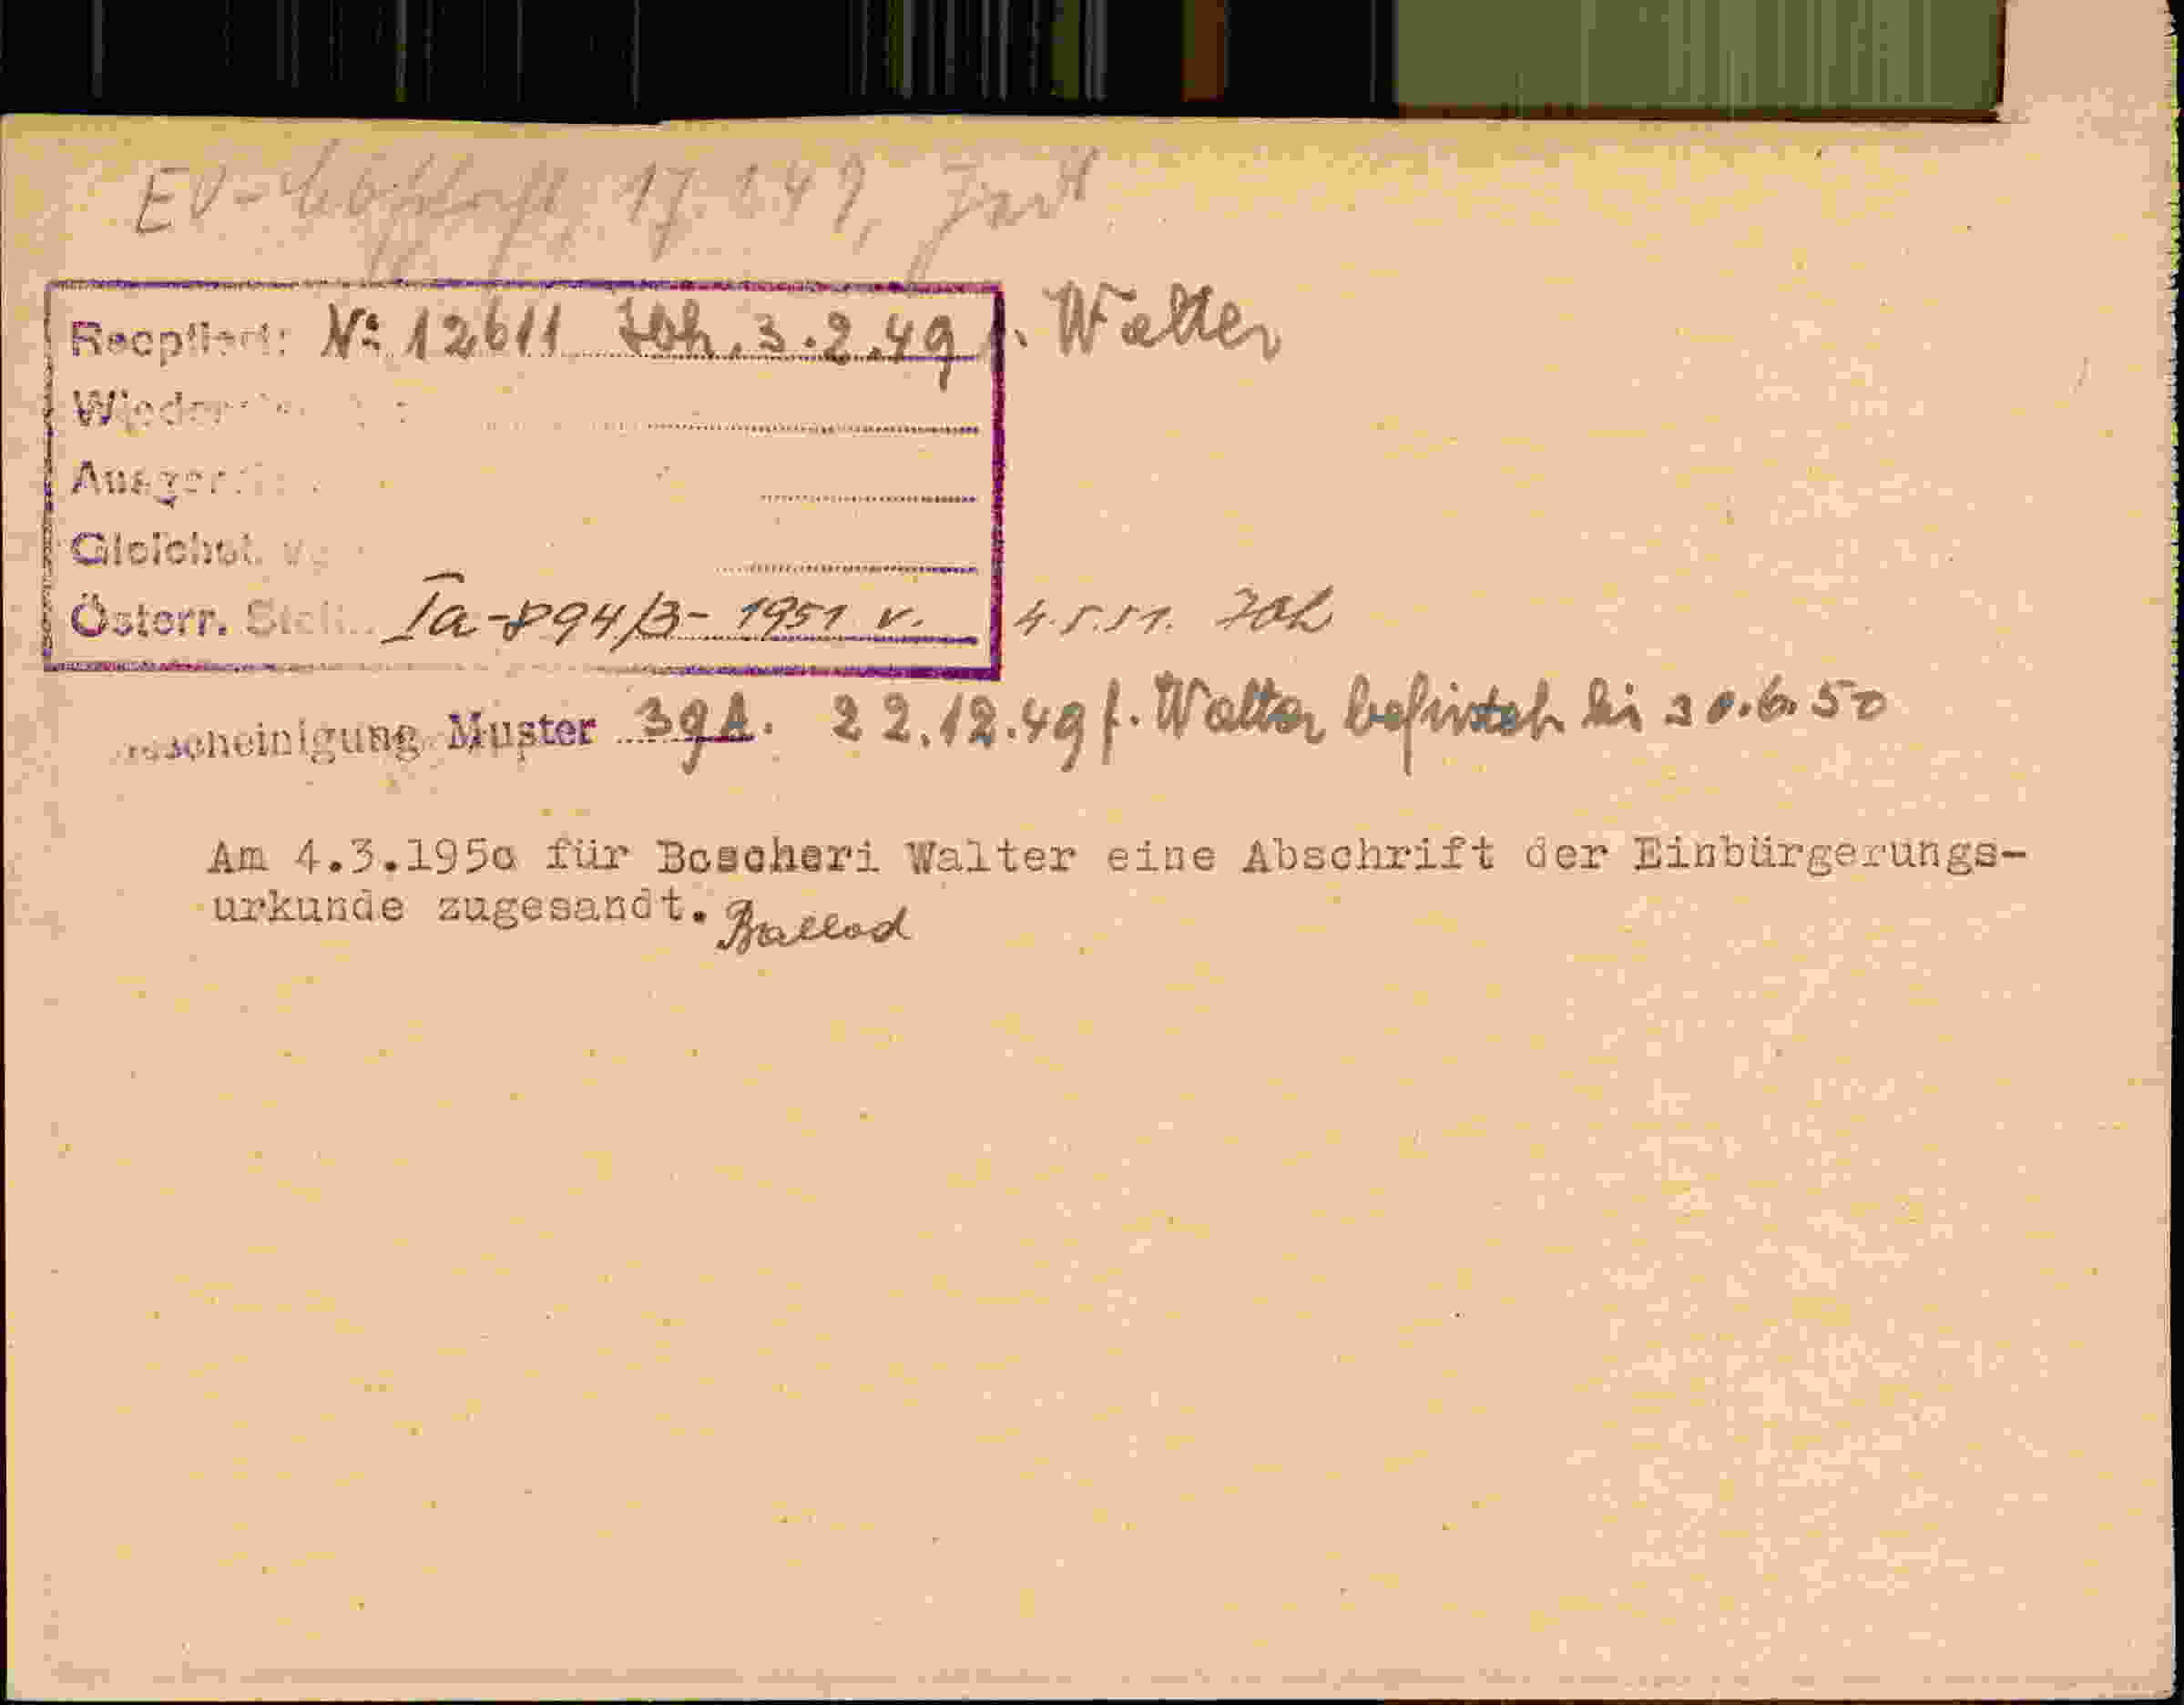 Reoptiert: No 12611 Zoh. 3.2.49 f. Walter
Wieder
Ausger
Gleichst. v.
Österr. Ia-894/3- 1951 v. 4.5.51. Zoh
Bescheinigung Muster 39A. 22.12.49 f. Walter befristet bis 30.6.50
Am 4.3.195o für Boscheri Walter eine Abschrift der Einbürgerungs-
urkunde zugesandt. Ballod